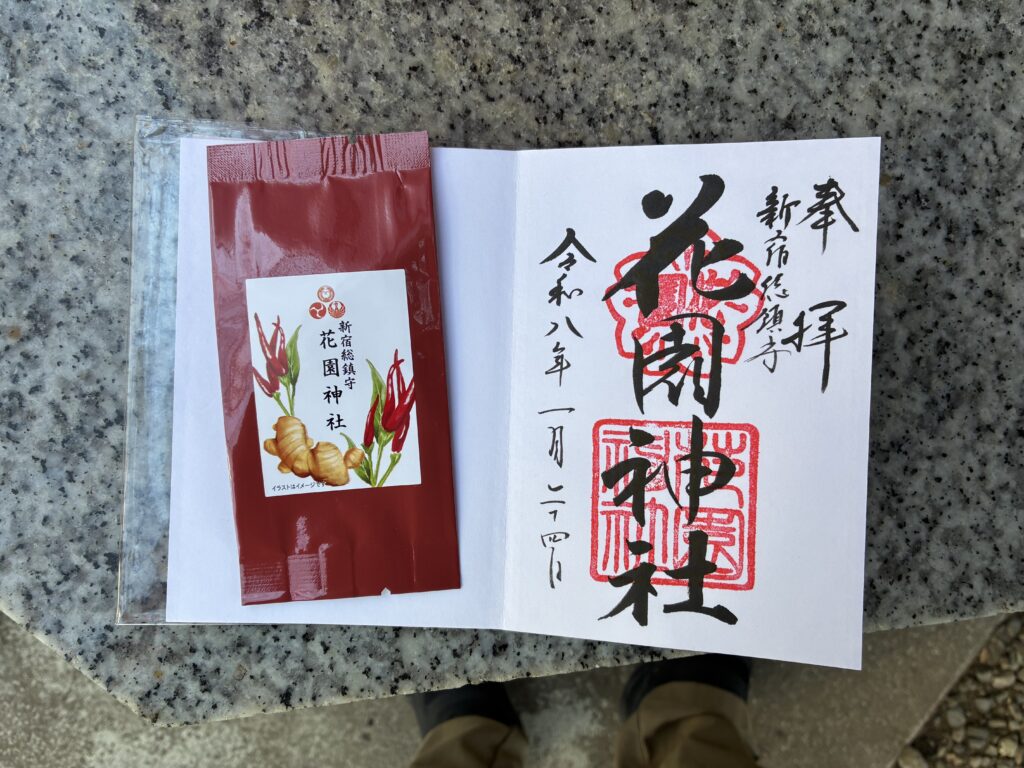 新宿総鎮守
花園神社
イラストはイメージです
奉拝
新宿総鎮守
花園神社
令和八年 一月 二十四日
花園
神社